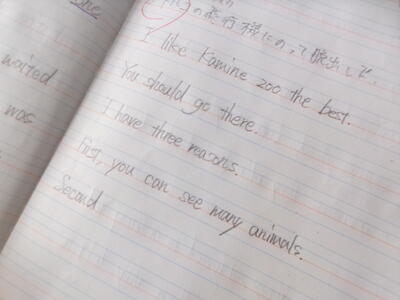 waited
was
の飛行様にのって脱出して、
I like Kamine zoo the best.
You should go there.
I have three reasons.
First, you can see many animals.
Second